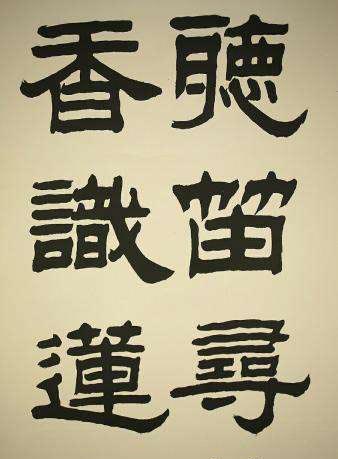 聽笛尋
香識蓮